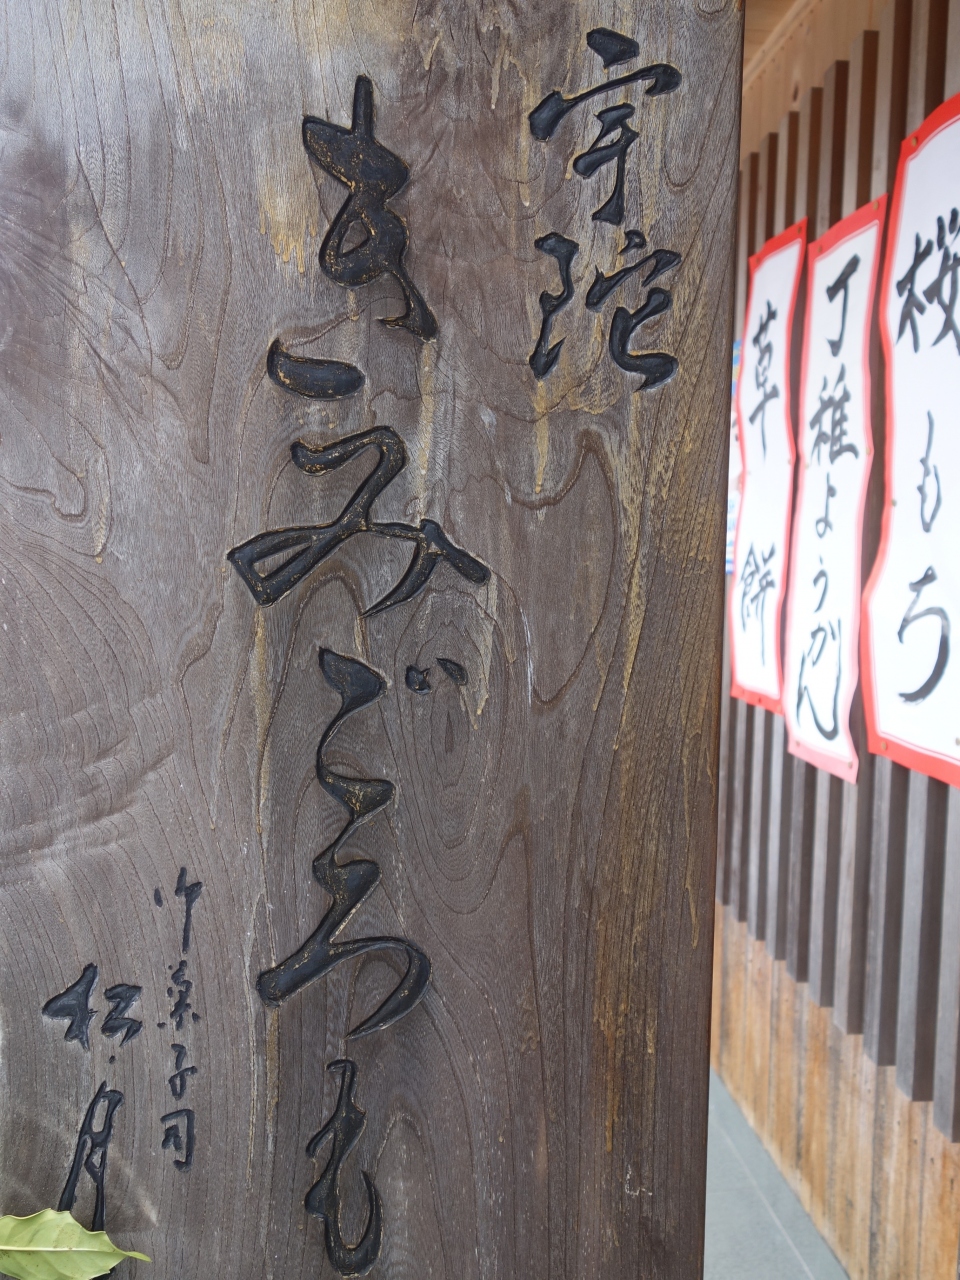 桜もち
丁稚ようかん
草餅
宇陀
きみごろも
御菓子司
松月